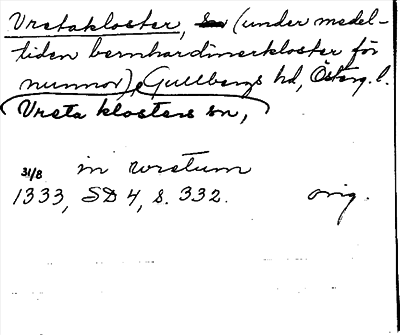 Vretakloster, (under medel-
tiden bernhardinerkloster för
nunnor), Gullbergs hd, Österg. l.
Vreta klosters sn,
31/8 in wretum
1333, SD 4, s. 332. orig.